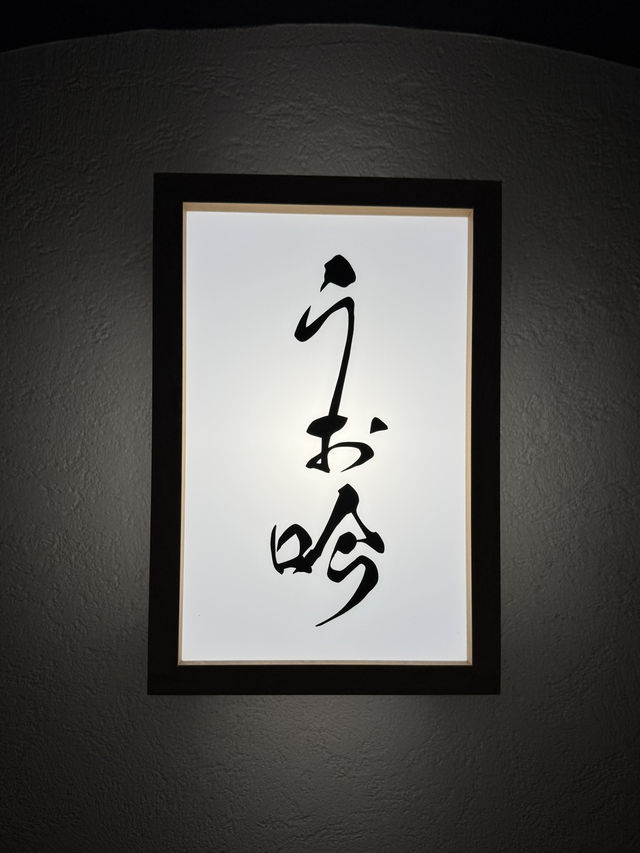 うお吟